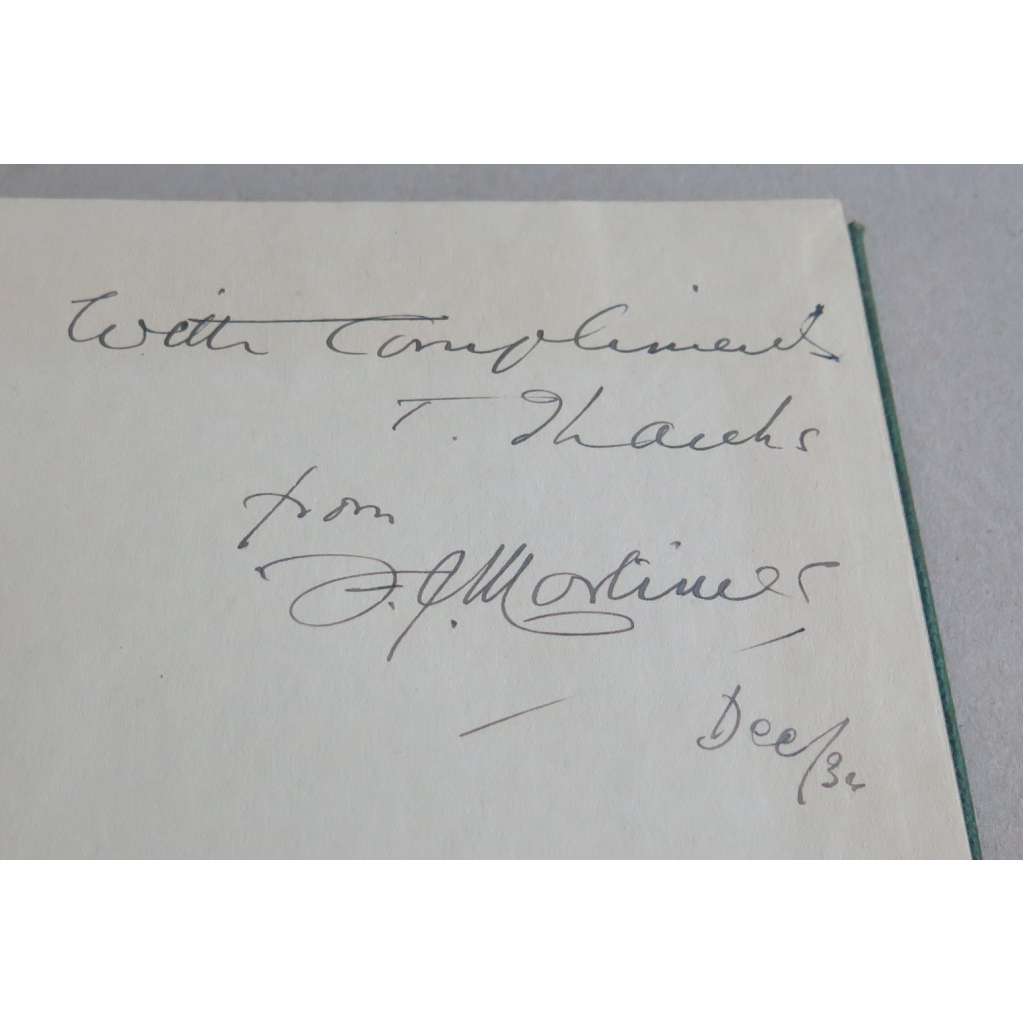 With Compliments
T. Thanks
from
F. J. Mortimer
Dec/32